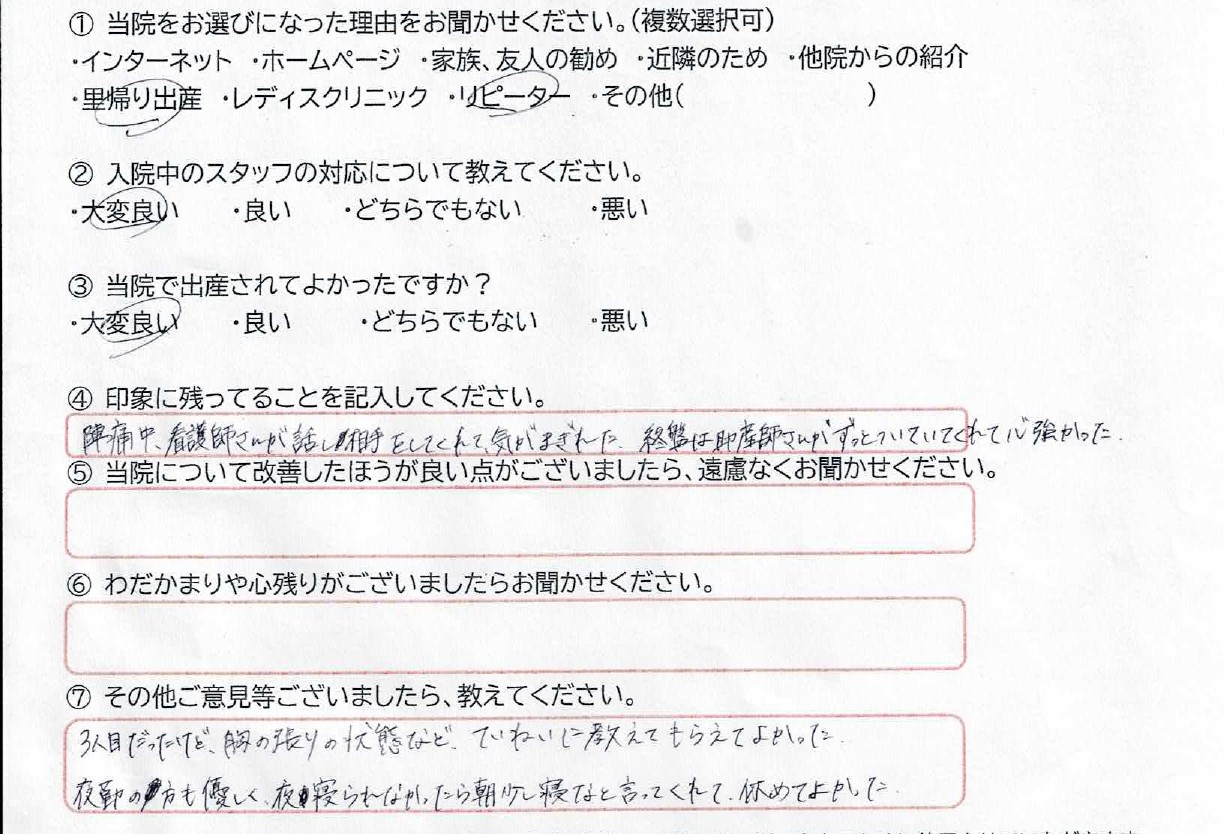 ① 当院をお選びになった理由をお聞かせください。(複数選択可)
・インターネット ・ホームページ ・家族、友人の勧め ・近隣のため ・他院からの紹介
・里帰り出産 ・レディスクリニック ・リピーター ・その他( )
② 入院中のスタッフの対応について教えてください。
・大変良い ・良い ・どちらでもない ・悪い
③ 当院で出産されてよかったですか？
・大変良い ・良い ・どちらでもない ・悪い
④ 印象に残ってることを記入してください。
陣痛中、看護師さんが話し相手をしてくれて、気がまぎれた。終盤は助産師さんがずっとついていてくれて心強かった。
⑤ 当院について改善したほうが良い点がございましたら、遠慮なくお聞かせください。
⑥ わだかまりや心残りがございましたらお聞かせください。
⑦ その他ご意見等ございましたら、教えてください。
3人目だったけど、胸の張りの状態など、ていねいに教えてもらえてよかった。
夜勤の方も優しく、夜寝られなかったら朝少し寝なと言ってくれて、休めてよかった。